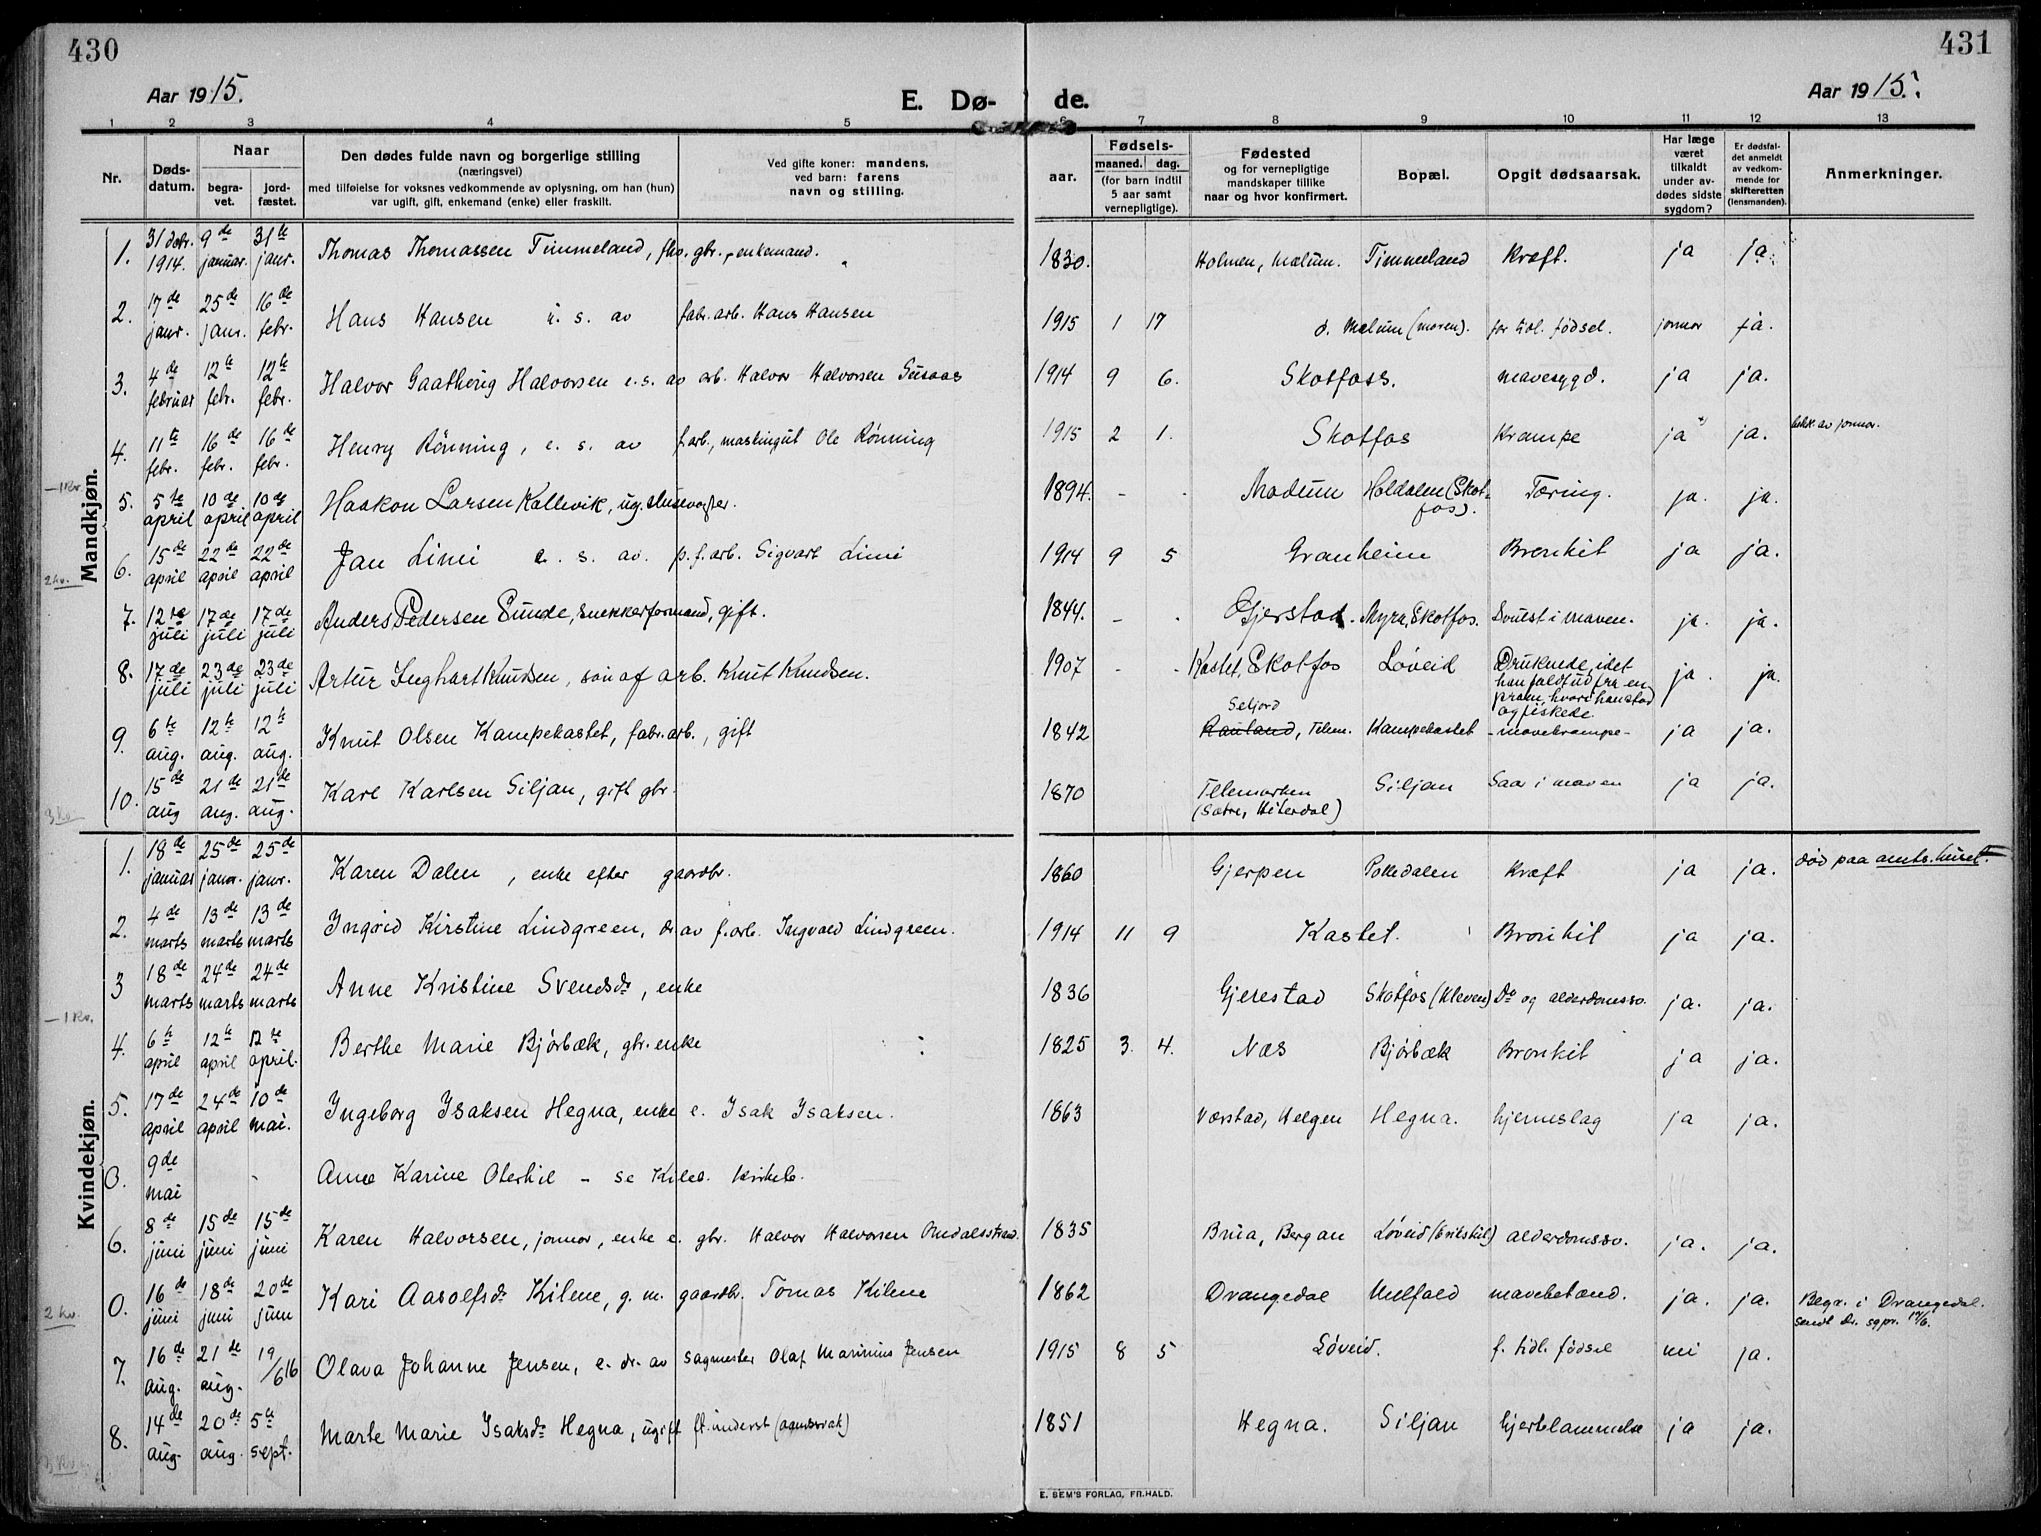 430
431
Aar 1915.
E. Dø-
de.
Aar 1915.
1 2 3 4 5 6 7 8 9 10 11 12 13
Nr.
Døds-
datum.
Naar
begra-
vet.
jord-
fæstet.
Den dødes fulde navn og borgerlige stilling
(næringsvei)
med tilføielse for voksnes vedkommende av oplysning, om han (hun)
var ugift, gift, enkemand (enke) eller fraskilt.
Ved gifte koner: mandens,
ved barn: farens
navn og stilling.
Fødsels-
aar.
maaned.
dag.
(for barn indtil
5 aar samt
vernepligtige).
Fødested
og for vernepligtige
mandskaper tillike
naar og hvor konfirmert.
Bopæl.
Opgit dødsaarsak.
Har læge
været
tilkaldt
under av-
dødes sidste
sygdom?
Er dødsfal-
det anmeldt
av vedkom-
mende for
skifteretten
(lensmanden).
Anmerkninger.
Mandkjøn.
1. 31 debr. 1914. 9de januar. 31te janr. Thomas Thomassen Timmeland, fhv. gbr., enkemand. 1830. Holmen, Mælum. Timmeland Kræft. ja ja.
2. 17de janr. 25de janr. 16de febr. Hans Hansen u. s. av fabr. arb. Hans Hansen 1915 1 17 d. Mælum (moren). for tidl. fødsel. jormor ja.
3. 4de februar 12te febr. 12te febr. Halvor Gaatherig Halvorsen e. s. av arb. Halvor Halvorsen Gusaas 1914 9 6. Skotfoss. mavesygd. ja ja.
4. 11te febr. 16de febr. 16de febr. Henry Rønning, e. s. av f. arb., maskingut Ole Rønning 1915 2 1. Skotfos Krampe ja ja. bekr. av jormor.
5. 5te april 10de april 10de april Haakon Larsen Kallevik, ug. slusevogter. 1894. - Modum Holdalen (Skotfos). Tæring. ja. ja.
6. 15de april 22de april 22de april Jan Limi e. s. av. p. f. arb. Sigvart Limi 1914 9 5 Granheim Bronkit ja ja.
7. 12te juli 17de juli 17de juli Anders Pedersen Sunde, snekkerformand, gift. 1844. - Gjerstad. Myra, Skotfos. Svulst i maven. ja. ja.
8. 17de juli 23de juli 23de juli Artur Inghart Knudsen, søn af arb. Knut Knudsen. 1907 - - Kastet, Skotfos Løveid Druknede, idet han faldt ud fra en pram, hvori han stod og fiskede. ja. ja.
9. 6te aug. 12te aug. 12te aug. Knut Olsen Kampekastet, fabr. arb., gift 1842 Seljord Rauland, Telem. Kampekastet - mavekrampe - ja ja.
10. 15de aug 21de aug. 21de aug. Karl Karlsen Siljan, gift gbr. 1870 Telemarken (Sætre, Hiterdal) Siljan Saar i maven ja ja.
Kvindekjøn.
1. 18de januar 25de janr. 25de janr. Karen Dalen, enke efter gaardbr. 1860 Gjerpen Pottedalen Kræft ja ja. død paa amts.huset.
2. 4de marts 13de marts 13de marts Ingrid Kirstine Lindgreen, dr. av f. arb. Ingvald Lindgreen. 1914 11 9 Kastet. Bronkit ja ja.
3 18de marts 24de marts 24de marts Anne Kristine Svendsdr, enke 1836 Gjerestad Skotfos (Kleven) Do og alderdomssv. ja. ja.
4. 6te april 12te april 12te april. Berthe Marie Bjørbæk, gbr. enke 1825 3. 4. Næs Bjørbæk Bronkit ja ja.
5. 17de april 24de april 10de mai. Ingeborg Isaksen Hegna, enke e. Isak Isaksen. 1863 Værstad, Helgen Hegna. hjerneslag ja ja.
0. 9de mai - Anne Karine Oterkil - se Kileb. kirkeb.
6. 8de juni 15de juni 15de juni Karen Halvorsen, jormor, enke e. gbr. Halvor Halvorsen Omdalsstrand. 1835 Brua, Bergan Løveid (Erikstul) alderdomssv. ja. ja.
0. 16de juni 18de juni 20de juni Kari Aasolfsdr Kilene, g. m. gaardbr. Tomas Kilene 1862 Drangedal Ulefald mavebetænd. ja. ja. Begr. i Drangedal. sendt dr. sgpr. 17/6.
7. 16de aug. 21de aug. 19/6 16 Olava Johanne Jensen, e. dr. av sagmester Olaf Marinius Jensen 1915 8 5 Løveid. f. tidl. fødsel nei ja.
8. 14de aug. 20de aug. 5te sept. Marte Marie Isaksdr Hegna, ugift ft. underst 1851 Hegna. Siljan hjertelammelse ja ja.
E. SEM'S FORLAG, FR.HALD.